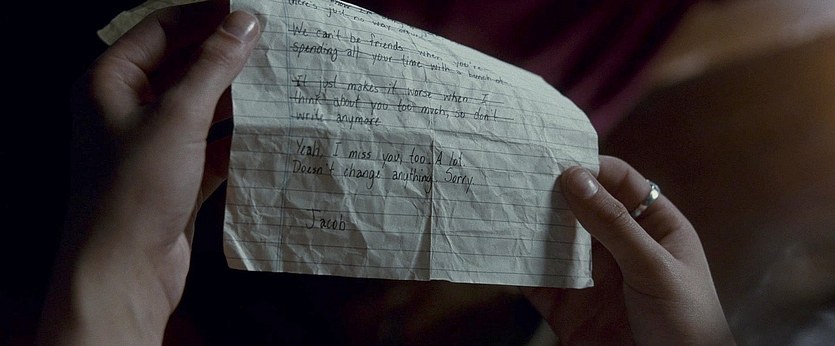 there's just no way around
We can't be friends when you're
spending all your time with a bunch of
It just makes it worse when I
think about you too much, so don't
write anymore
Yeah, I miss you, too. A lot.
Doesn't change anything. Sorry.
Jacob